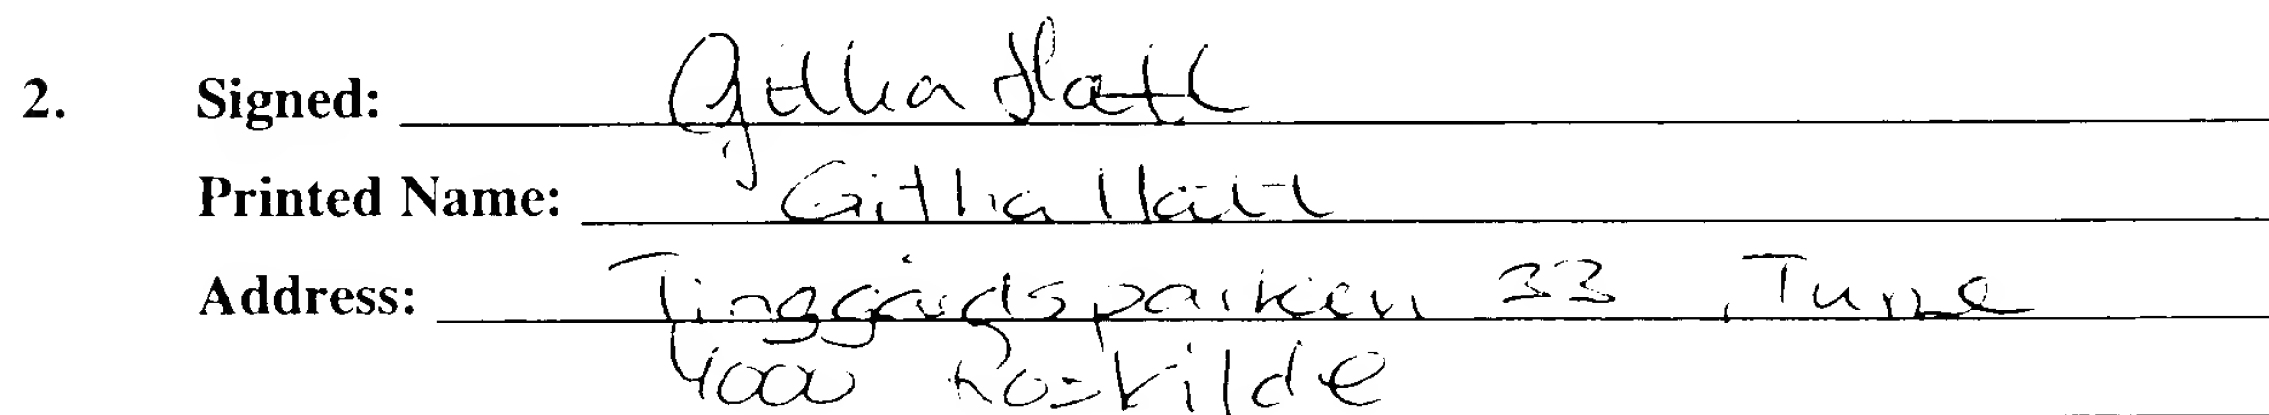 2. Signed: Githa Hatt
Printed Name: Githa Hatt
Address: Tinggårdsparken 33, Tune
4000 Roskilde